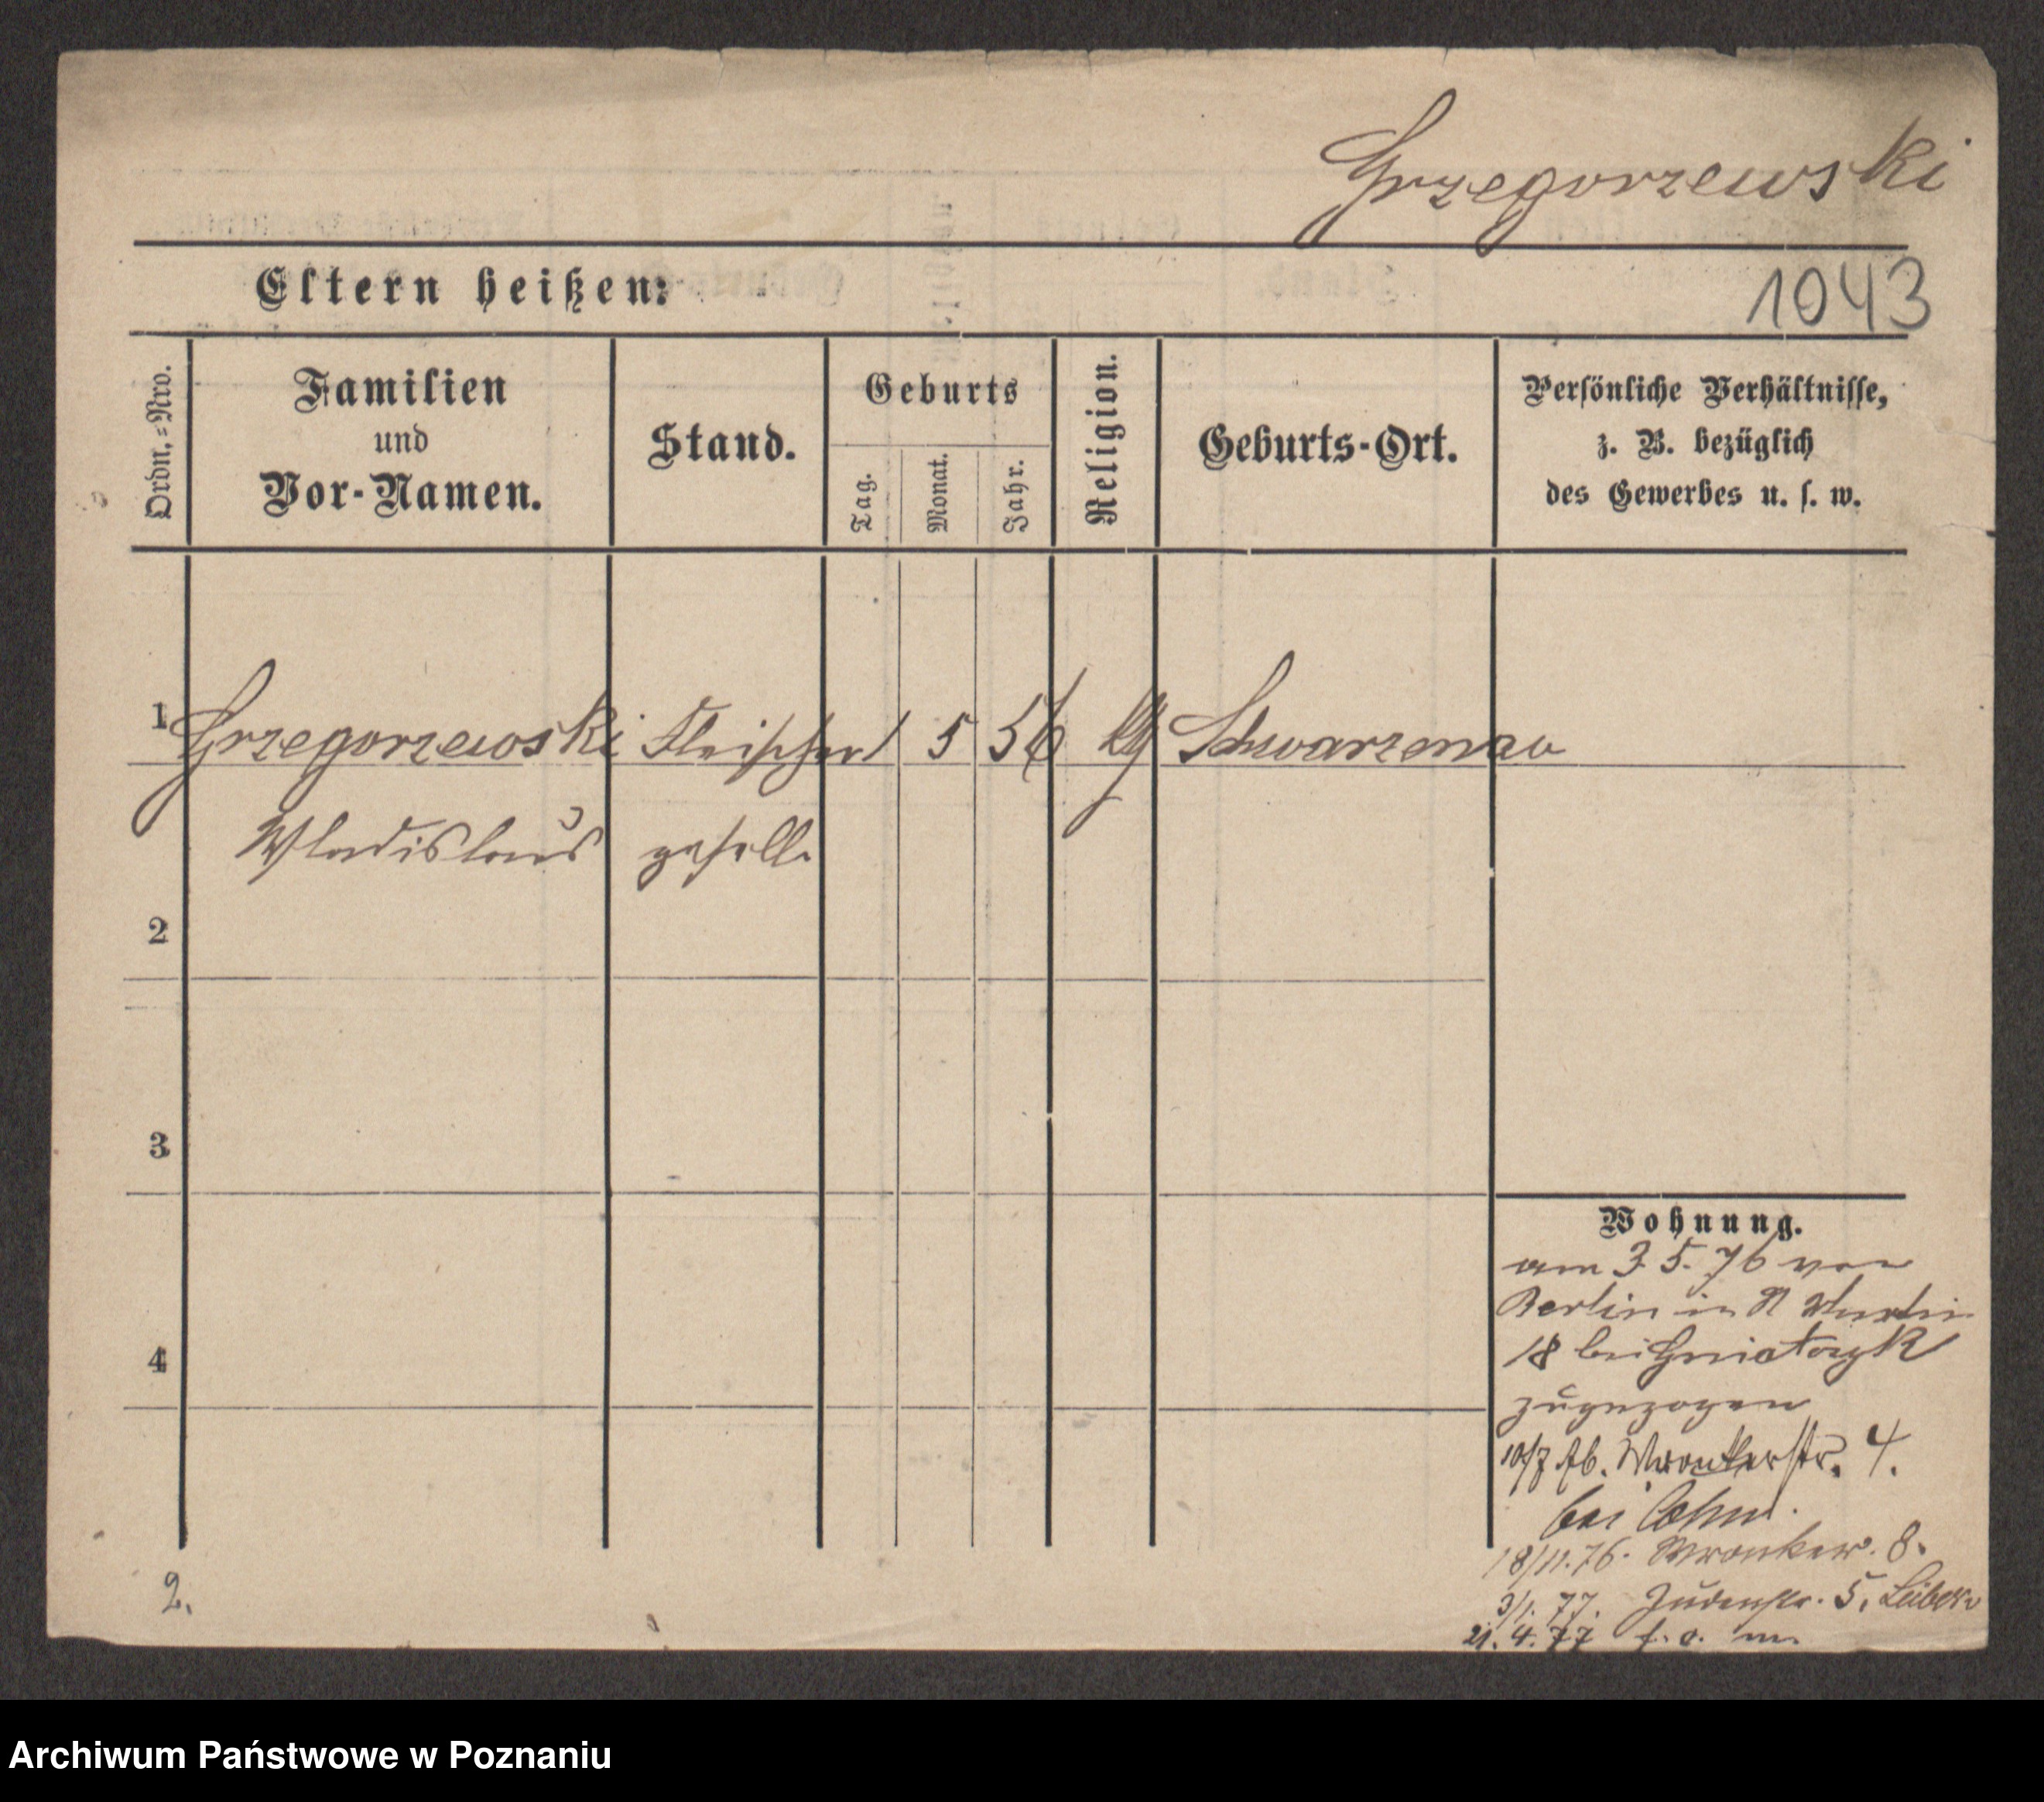 Grzegorzewski
Eltern heißen:
1043
Ordn.-Nro.
Familien
und
Vor-Namen.
Stand.
Geburts
Tag.
Monat.
Jahr.
Religion.
Geburts-Ort.
Persönliche Verhältnisse,
z. B. bezüglich
des Gewerbes u. s. w.
1 Grzegorzewski Fleischer 1 5 56 Schwarzenau
Wladislaus gesell
2
3
4
Wohnung.
am 3. 5. 76 von
Berlin in
18 bei
zugezogen
10/7 Wronkerstr. 4.
bei Cohn.
18/11. 76. Wronker. 8.
3/1. 77. Judenstr. 5.
21. 4. 77
2.
Archiwum Państwowe w Poznaniu